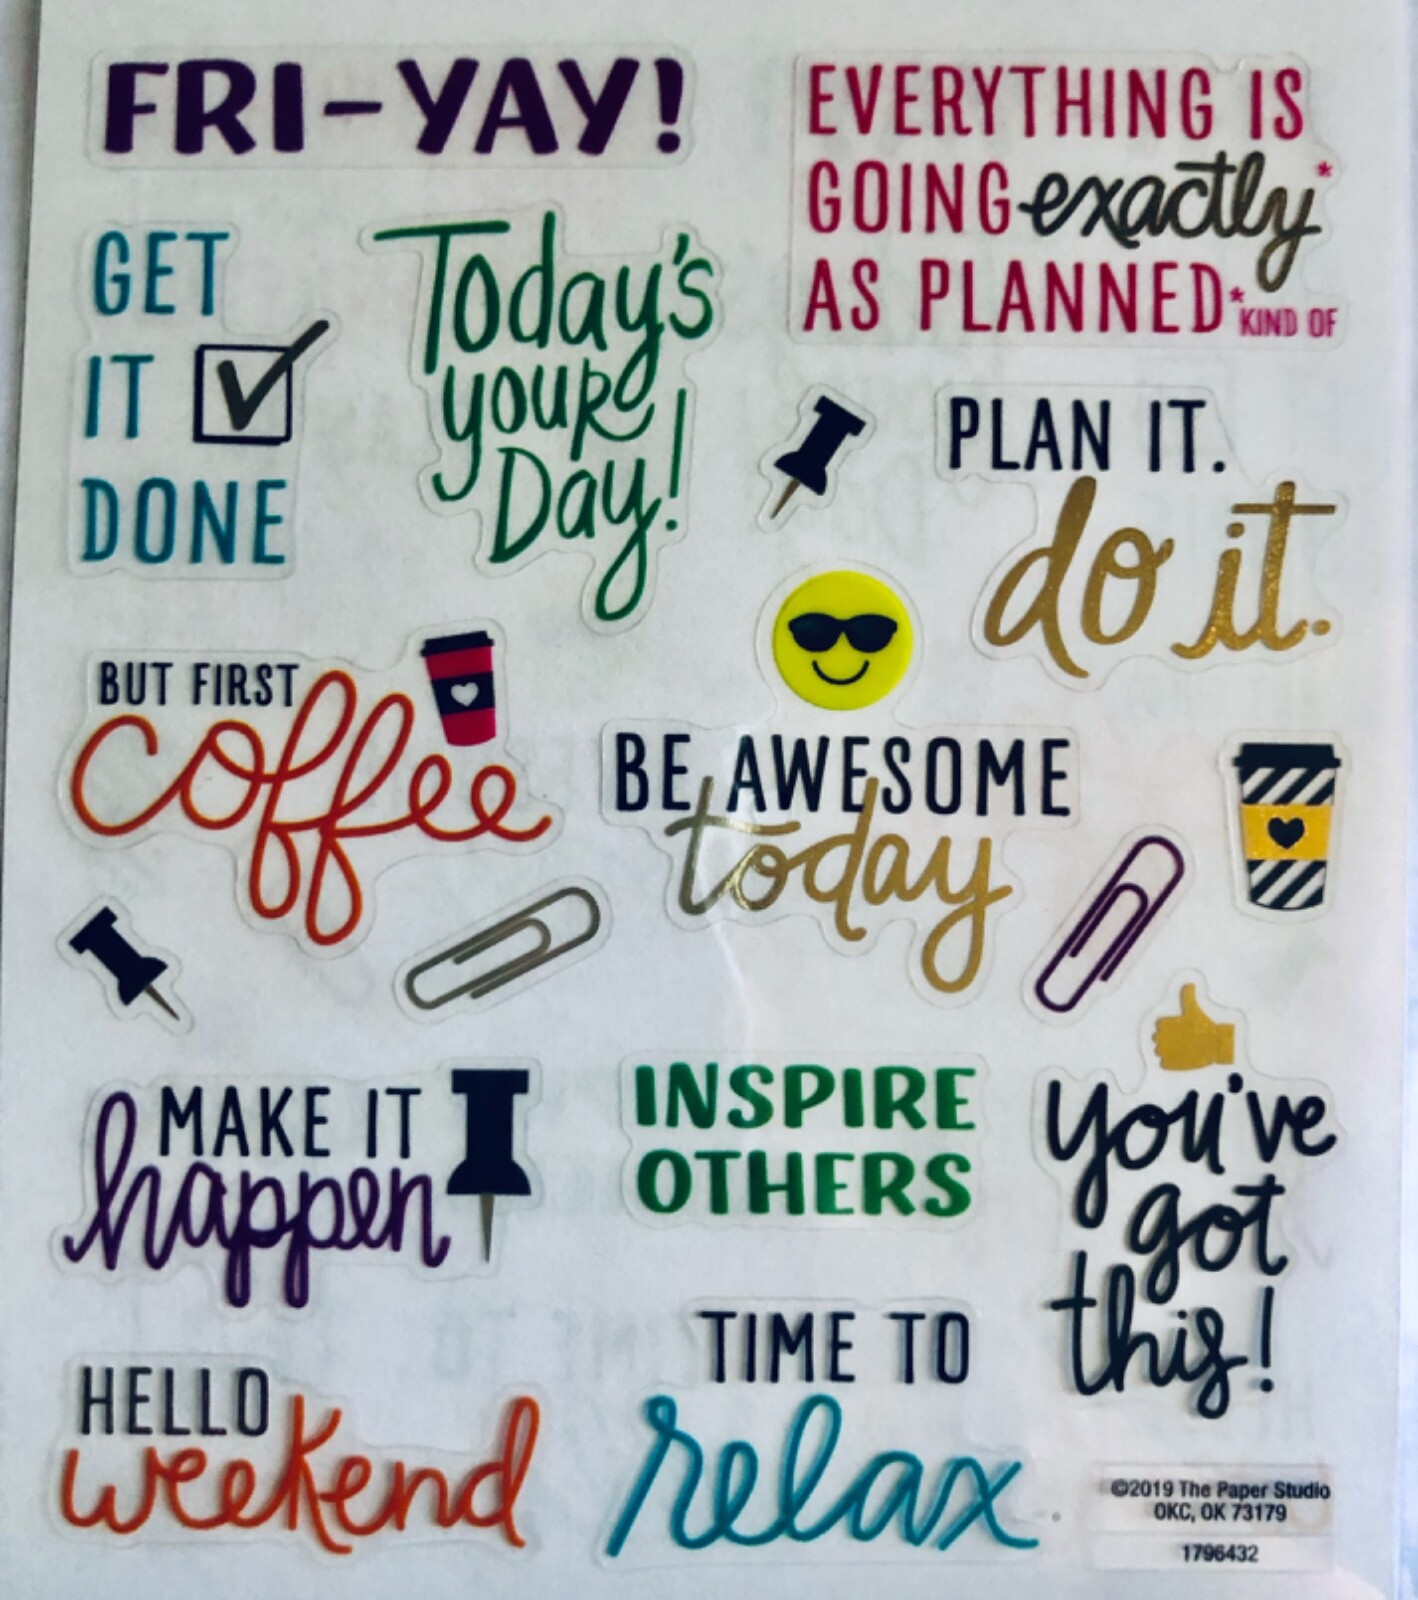 FRI-YAY!
EVERYTHING IS
GOING exactly*
AS PLANNED*KIND OF
GET
IT
DONE
Today's
your
Day!
PLAN IT.
do it.
BUT FIRST
coffee
BE AWESOME
today
MAKE IT
happen
INSPIRE
OTHERS
you've
got
this!
HELLO
weekend
TIME TO
relax
©2019 The Paper Studio
OKC, OK 73179
1796432